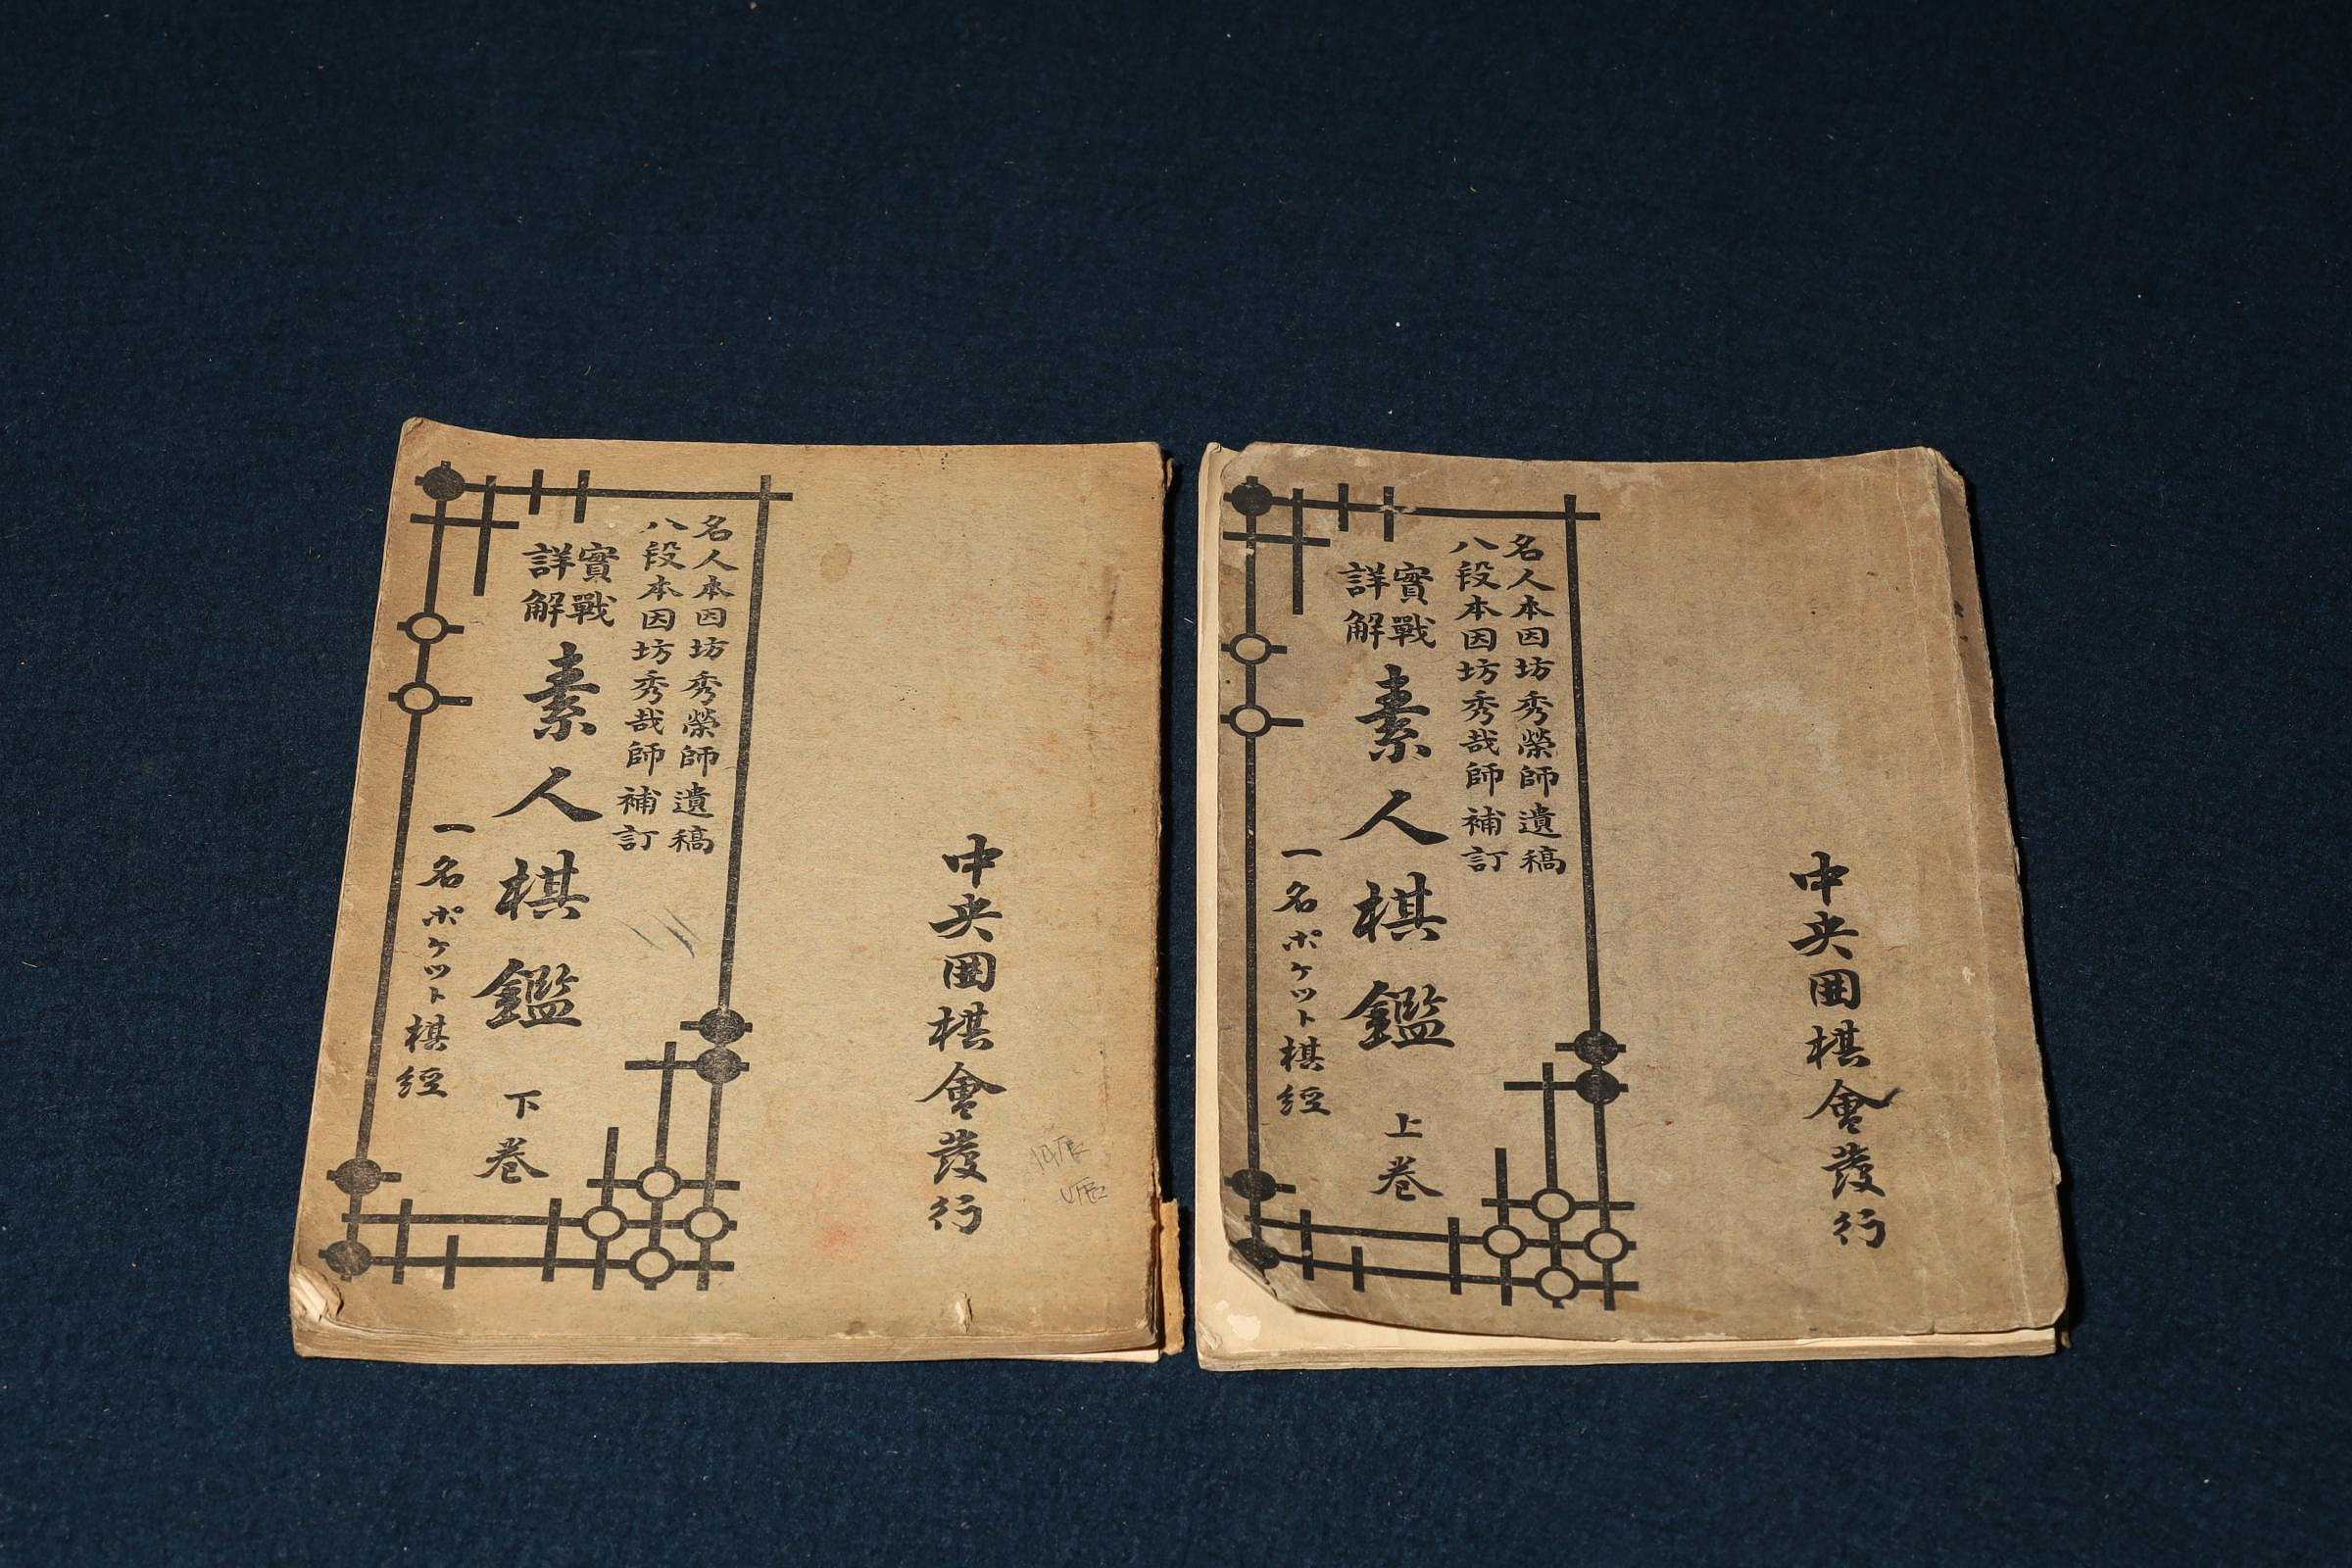 名人本因坊秀榮師遺稿
八段本因坊秀哉師補訂
實戰
詳解
素人棋鑑 上巻
一名ポケット棋經
中央囲棋會發行
名人本因坊秀榮師遺稿
八段本因坊秀哉師補訂
實戰
詳解
素人棋鑑 下巻
一名ポケット棋經
中央囲棋會發行